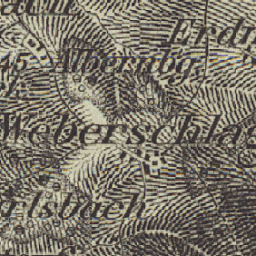 Erdn
45
Albernbg.
Weberschlag
rlsbach